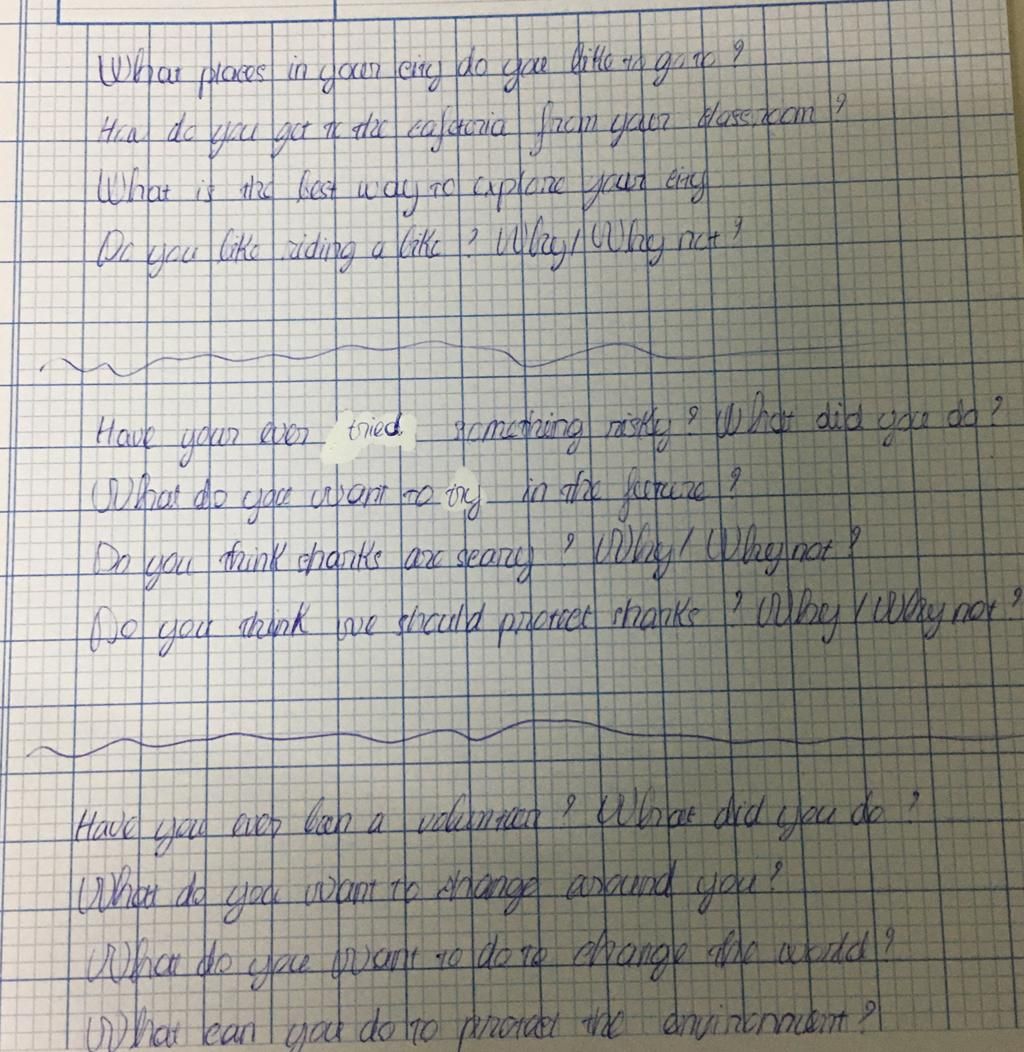 What places in your city do you like to go to?
How do you get to the cafeteria from your classroom?
What is the best way to explore your city
Do you like riding a bike? Why/Why not?
Have your ever tried something risky? What did you do?
What do you want to try in the future?
Do you think sharks are scary? Why/Why not?
Do you think we should protect sharks? Why/Why not?
Have you ever been a volunteer? What did you do?
What do you want to change around you?
What do you want to do to change the world?
What can you do to protect the environment?